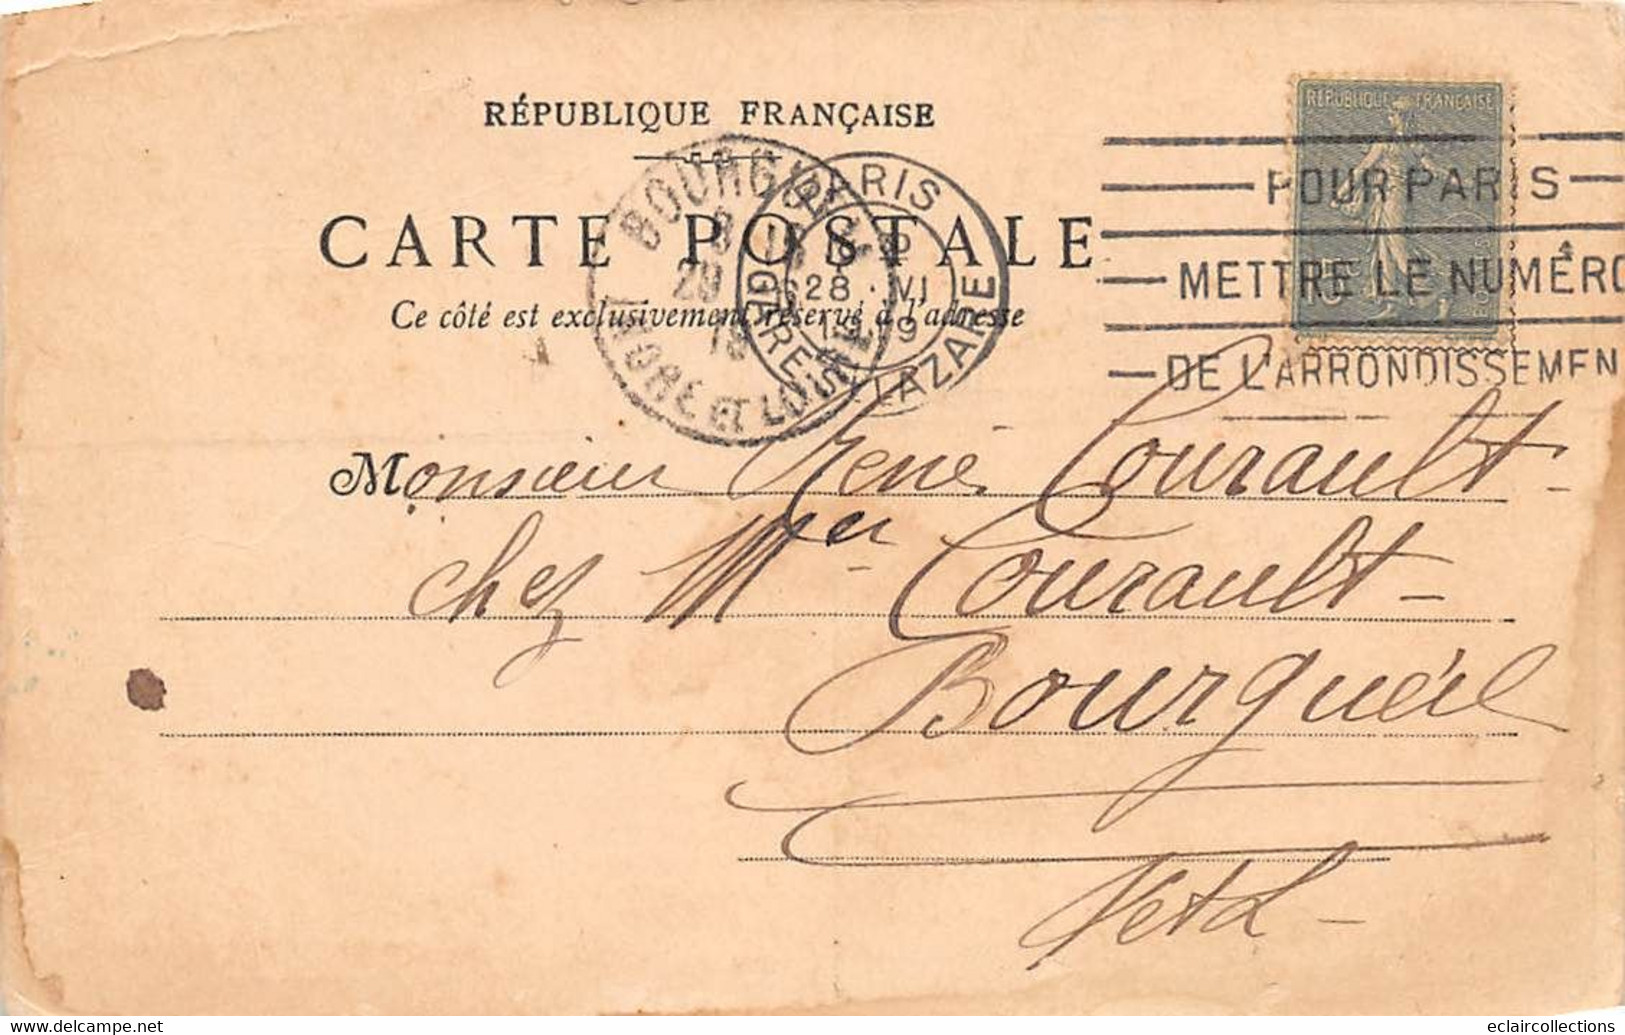 RÉPUBLIQUE FRANÇAISE
CARTE POSTALE
Ce côté est exclusivement réservé à l'adresse
RÉPUBLIQUE FRANÇAISE
15
POSTES
BOURGUEIL
29
19
INDRE ET LOIRE
PARIS
28 · VI
19
GARE
LAZARE
POUR PARIS
METTRE LE NUMÉRO
DE L'ARRONDISSEMEN
Monsieur René Courault
chez Mer Courault
Bourgueil
I et L
eclaircollections